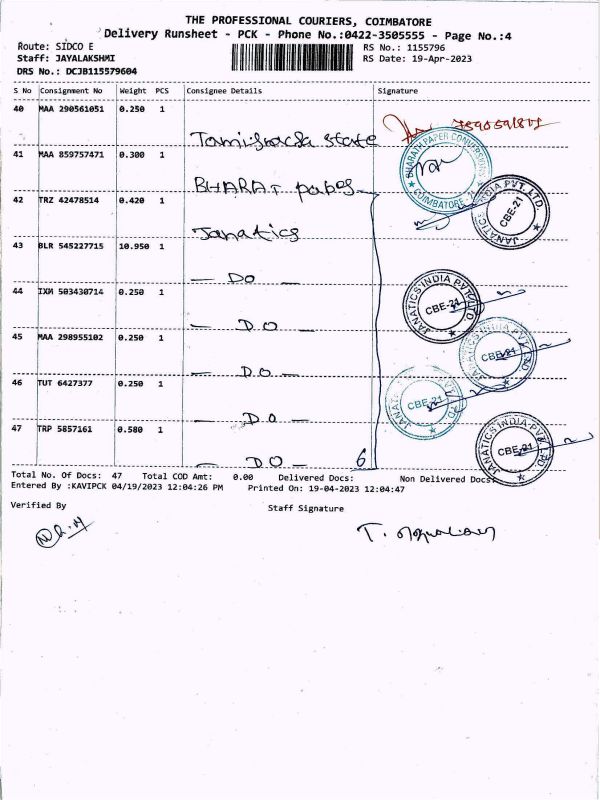 THE PROFESSIONAL COURIERS, COIMBATORE
Delivery Runsheet - PCK - Phone No.:0422-3505555 - Page No.:4
Route: SIDCO E
RS No.: 1155796
Staff: JAYALAKSHMI
RS Date: 19-Apr-2023
DRS No.: DCJB115579604
S No Consignment No Weight PCS Consignee Details Signature
40 MAA 290561051 0.250 1
Tamilnadu state
41 MAA 859757471 0.300 1
BHARATH PAPER CONVERSIONS
COIMBATORE
BHARAT
42 TRZ 42478514 0.420 1
JANATICS INDIA PVT. LTD.
CBE-21
Janatics
43 BLR 545227715 10.950 1
— DO —
44 IXM 503430714 0.250 1
JANATICS INDIA PVT. LTD
CBE-21
— DO —
45 MAA 298955102 0.250 1
JANATICS INDIA PVT. LTD
CBE-21
— DO —
46 TUT 6427377 0.250 1
CBE-21
— DO —
47 TRP 5857161 0.580 1
JANATICS INDIA PVT. LTD
CBE-21
— DO — 6
Total No. Of Docs: 47 Total COD Amt: 0.00 Delivered Docs: Non Delivered Docs:
Entered By :KAVIPCK 04/19/2023 12:04:26 PM Printed On: 19-04-2023 12:04:47
Verified By
Staff Signature